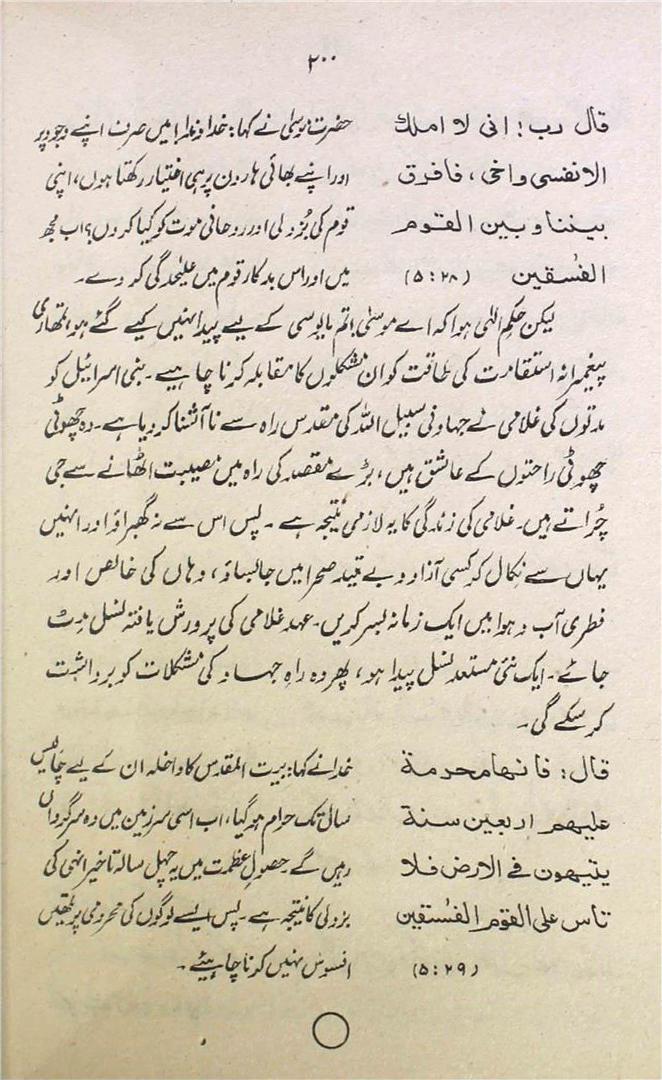 ۲۰۰
قال رب: انی لا املك
الانفسی واخی، فافرق
بیننا و بین القوم
الفٰسقین (۵:۲۸)
حضرت موسیٰ نے کہا: خداوندا! میں صرف اپنے وجود پر
اور اپنے بھائی ہارون پر ہی اختیار رکھتا ہوں، اپنی
قوم کی بزدلی اور روحانی موت کو کیا کروں؟ اب مجھ
میں اور اس بدکار قوم میں علیٰحدگی کر دے۔
لیکن حکم الٰہی ہوا کہ اے موسیٰ! تم مایوسی کے لیے پیدا نہیں کیے گئے ہو، تمھاری
پیغمبرانہ استقامت کی طاقت کو ان مشکلوں کا مقابلہ کرنا چاہیے۔ بنی اسرائیل کو
مدتوں کی غلامی نے جہاد فی سبیل اللہ کی مقدس راہ سے نا آشنا کر دیا ہے۔ وہ چھوٹی
چھوٹی راحتوں کے عاشق ہیں، بڑے مقصد کی راہ میں مصیبت اٹھانے سے جی
چُراتے ہیں۔ غلامی کی زندگی کا یہ لازمی نتیجہ ہے۔ پس اس سے نہ گھبراؤ اور انہیں
یہاں سے نکال کر کسی آزاد و بے قید صحرا میں جا بساؤ، وہاں کی خالص اور
فطری آب و ہوا میں ایک زمانہ بسر کریں۔ عہد غلامی کی پرورش یافتہ نسل مِٹ
جائے۔ ایک نئی مستعد نسل پیدا ہو، پھر وہ راہِ جہاد کی مشکلات کو برداشت
کر سکے گی۔
قال: فانها محرمة
علیهم اربعین سنة
یتیهون فی الارض فلا
تاس علی القوم الفٰسقین
(۵:۲۹)
خدا نے کہا: بیت المقدس کا داخلہ ان کے لیے چالیس
سال تک حرام ہو گیا، اب اسی سرزمین میں وہ سرگرداں
رہیں گے۔ حصول عظمت میں یہ چہل سالہ تاخیر انہی کی
بزدلی کا نتیجہ ہے۔ پس ایسے لوگوں کی محرومی پر تمھیں
افسوس نہیں کرنا چاہیئے۔